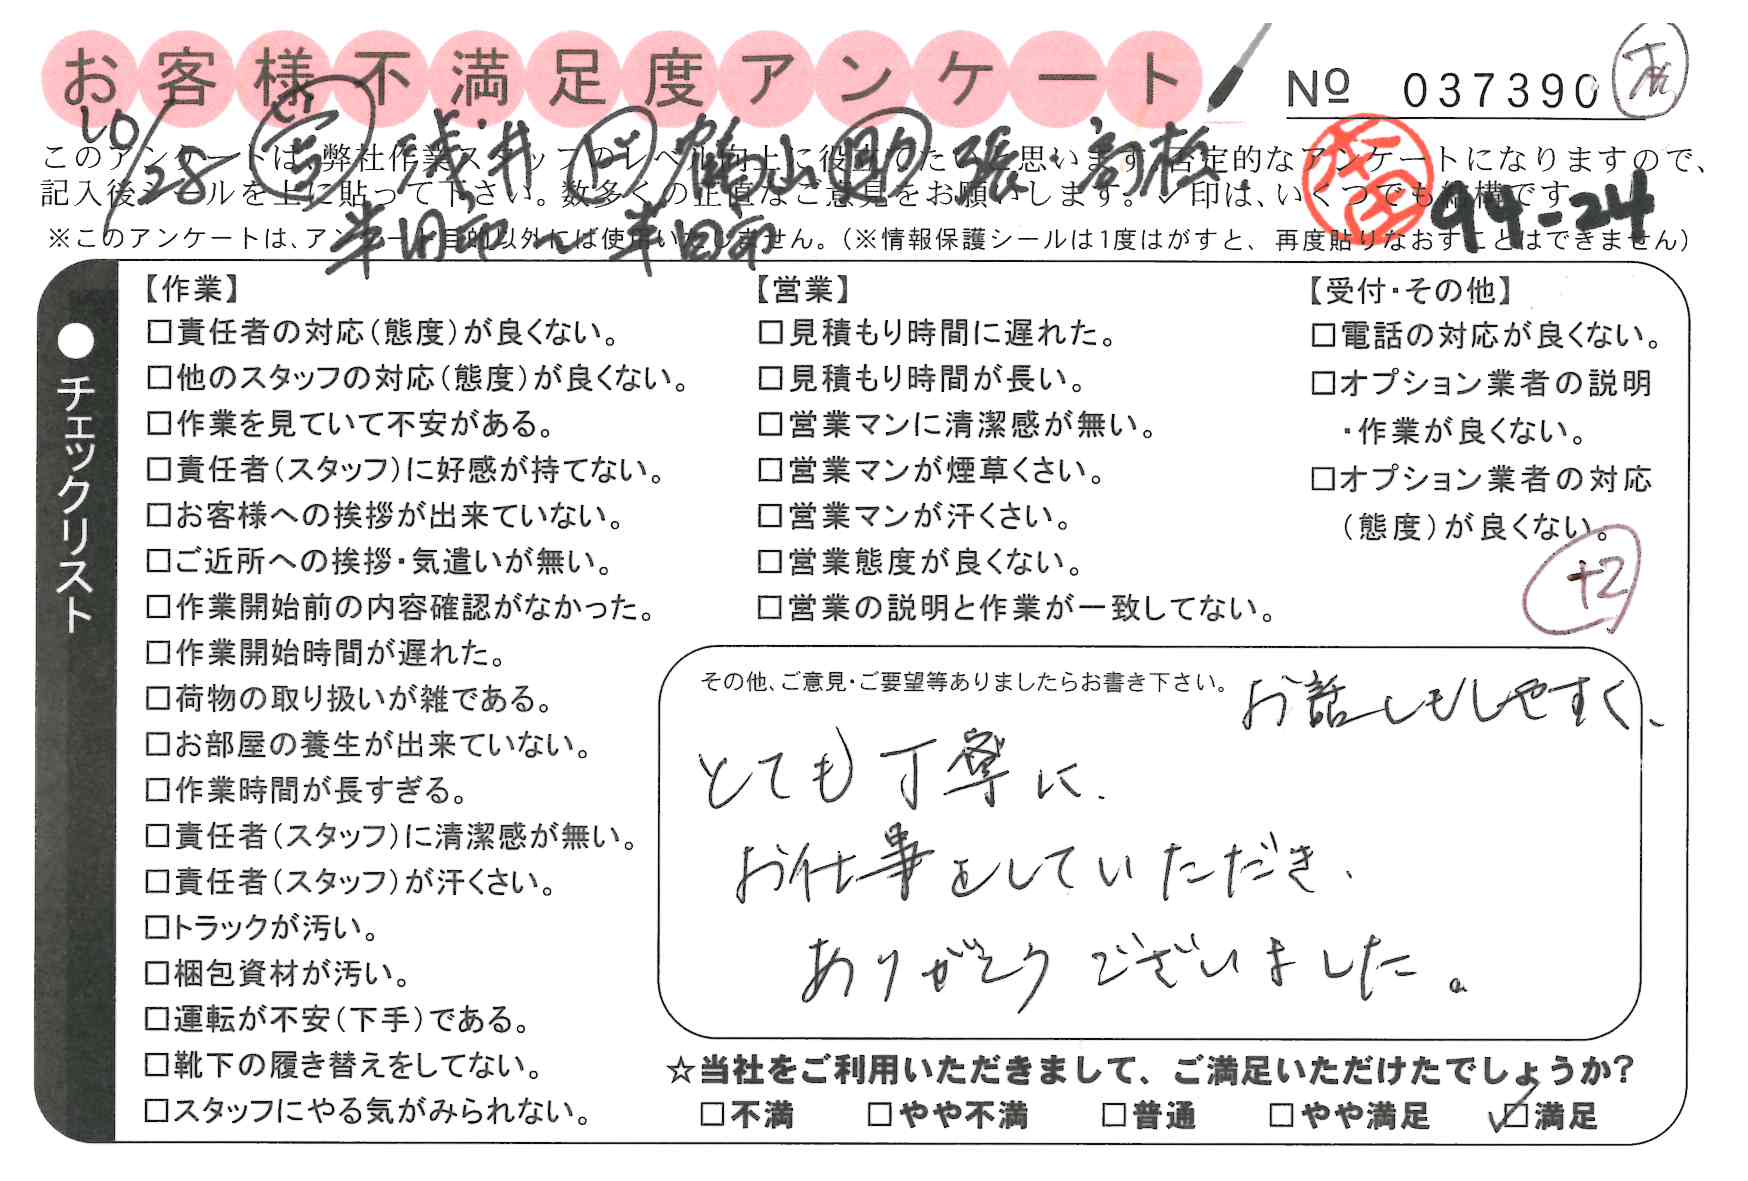 お客様不満足度アンケート
№ 037390
10/28 浅井 張 高松
このアンケートは、弊社作業スタッフのレベル向上に役立てたいと思います。否定的なアンケートになりますので、
記入後シールを上に貼って下さい。数多くの正直なご意見をお願いします。✓印は、いくつでも結構です。
94-24
半田市〜半田市
※このアンケートは、アンケート目的以外には使用いたしません。(※情報保護シールは1度はがすと、再度貼りなおすことはできません)
●チェックリスト
【作業】
□責任者の対応(態度)が良くない。
□他のスタッフの対応(態度)が良くない。
□作業を見ていて不安がある。
□責任者(スタッフ)に好感が持てない。
□お客様への挨拶が出来ていない。
□ご近所への挨拶・気遣いが無い。
□作業開始前の内容確認がなかった。
□作業開始時間が遅れた。
□荷物の取り扱いが雑である。
□お部屋の養生が出来ていない。
□作業時間が長すぎる。
□責任者(スタッフ)に清潔感が無い。
□責任者(スタッフ)が汗くさい。
□トラックが汚い。
□梱包資材が汚い。
□運転が不安(下手)である。
□靴下の履き替えをしてない。
□スタッフにやる気がみられない。
【営業】
□見積もり時間に遅れた。
□見積もり時間が長い。
□営業マンに清潔感が無い。
□営業マンが煙草くさい。
□営業マンが汗くさい。
□営業態度が良くない。
□営業の説明と作業が一致してない。
【受付・その他】
□電話の対応が良くない。
□オプション業者の説明
・作業が良くない。
□オプション業者の対応
(態度)が良くない。
+2
その他、ご意見・ご要望等ありましたらお書き下さい。
お話しもしやすく、
とても丁寧に、
お仕事をしていただき、
ありがとうございました。
☆当社をご利用いただきまして、ご満足いただけたでしょうか?
□不満 □やや不満 □普通 □やや満足 ✓□満足